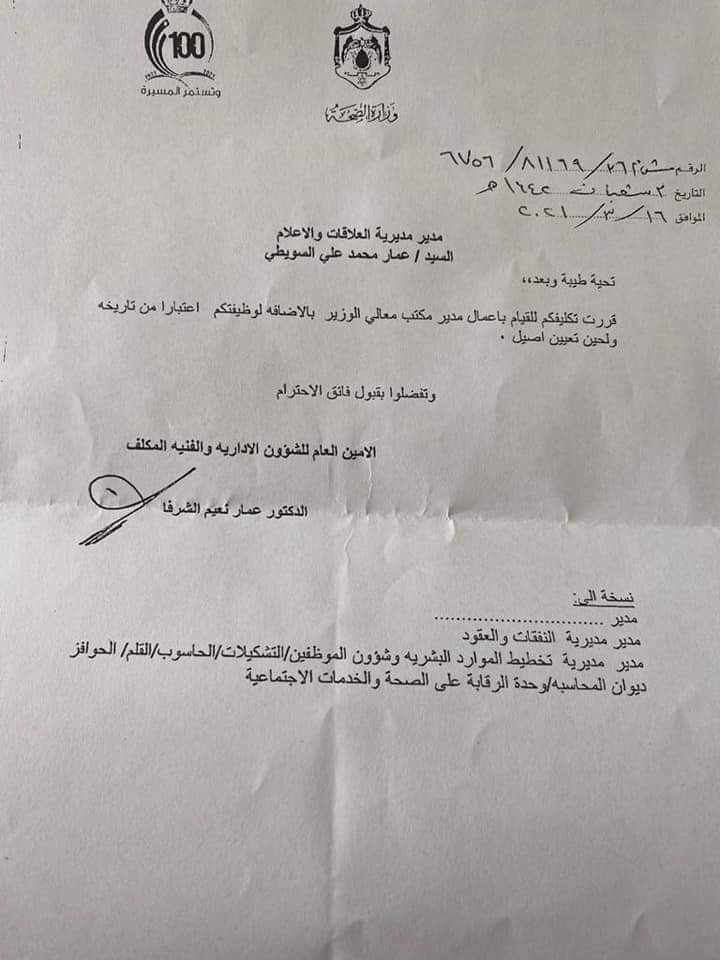 100
1921 2021
وتستمر المسيرة
وزارة الصحة
الرقم ش م٢٦٢/٨١١٦٩/٦٧٥٦
التاريخ ٣ شعبان ١٤٤٢ هـ
الموافق ١٦/٣/٢٠٢١
مدير مديرية العلاقات والاعلام
السيد / عمار محمد علي السويطي
تحية طيبة وبعد،،
قررت تكليفكم للقيام باعمال مدير مكتب معالي الوزير بالاضافه لوظيفتكم اعتبارا من تاريخه
ولحين تعيين اصيل .
وتفضلوا بقبول فائق الاحترام
الامين العام للشؤون الاداريه والفنيه المكلف
الدكتور عمار نعيم الشرفا
نسخة الى:
مدير ..............................
مدير مديرية النفقات والعقود
مدير مديرية تخطيط الموارد البشريه وشؤون الموظفين/التشكيلات/الحاسوب/القلم/ الحوافز
ديوان المحاسبه/وحدة الرقابة على الصحة والخدمات الاجتماعية